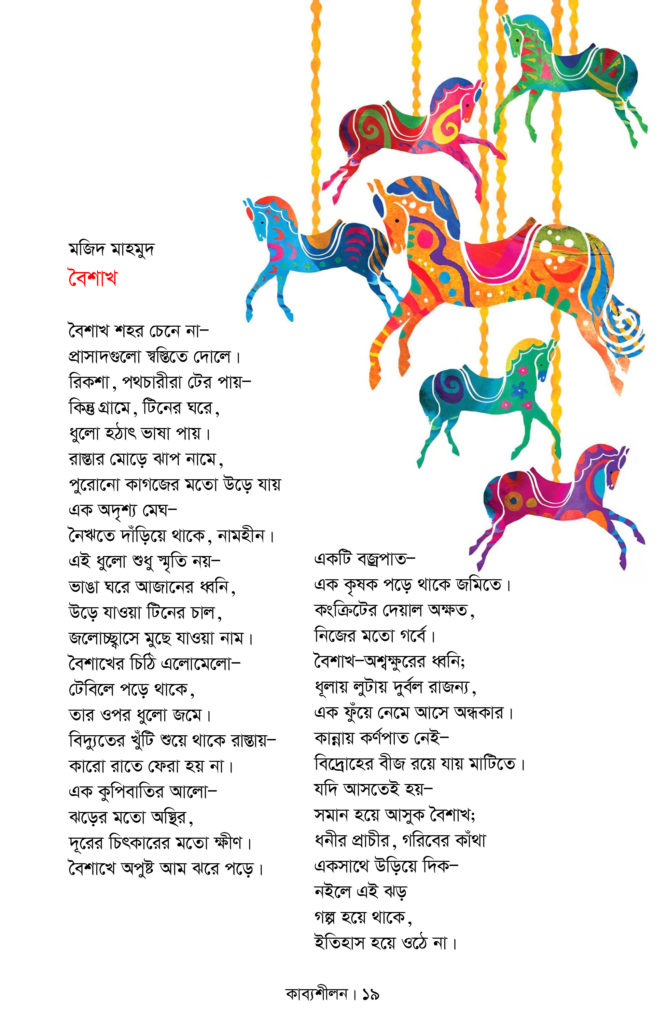 মজিদ মাহমুদ
বৈশাখ
বৈশাখ শহর চেনে না–
প্রাসাদগুলো স্বস্তিতে দোলে।
রিকশা, পথচারীরা টের পায়–
কিন্তু গ্রামে, টিনের ঘরে,
ধুলো হঠাৎ ভাষা পায়।
রাস্তার মোড়ে ঝাপ নামে,
পুরোনো কাগজের মতো উড়ে যায়
এক অদৃশ্য মেঘ–
নৈঋতে দাঁড়িয়ে থাকে, নামহীন।
এই ধুলো শুধু স্মৃতি নয়–
ভাঙা ঘরে আজানের ধ্বনি,
উড়ে যাওয়া টিনের চাল,
জলোচ্ছ্বাসে মুছে যাওয়া নাম।
বৈশাখের চিঠি এলোমেলো–
টেবিলে পড়ে থাকে,
তার ওপর ধুলো জমে।
বিদ্যুতের খুঁটি শুয়ে থাকে রাস্তায়–
কারো রাতে ফেরা হয় না।
এক কুপিবাতির আলো–
ঝড়ের মতো অস্থির,
দূরের চিৎকারের মতো ক্ষীণ।
বৈশাখে অপুষ্ট আম ঝরে পড়ে।
একটি বজ্রপাত–
এক কৃষক পড়ে থাকে জমিতে।
কংক্রিটের দেয়াল অক্ষত,
নিজের মতো গর্বে।
বৈশাখ–অশ্বক্ষুরের ধ্বনি;
ধূলায় লুটায় দুর্বল রাজন্য,
এক ফুঁয়ে নেমে আসে অন্ধকার।
কান্নায় কর্ণপাত নেই–
বিদ্রোহের বীজ রয়ে যায় মাটিতে।
যদি আসতেই হয়–
সমান হয়ে আসুক বৈশাখ;
ধনীর প্রাচীর, গরিবের কাঁথা
একসাথে উড়িয়ে দিক–
নইলে এই ঝড়
গল্প হয়ে থাকে,
ইতিহাস হয়ে ওঠে না।
কাব্যশীলন। ১৯